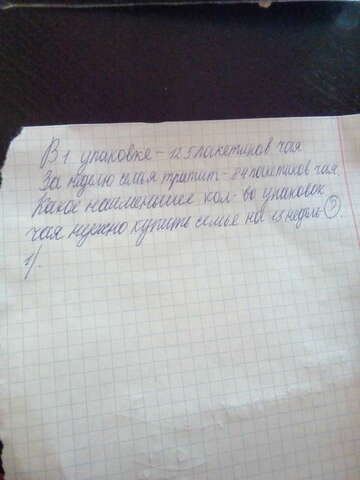 В 1 упаковке - 125 пакетиков чая
За неделю семья тратит - 84 пакетиков чая.
Какое наименьшее кол-во упаковок
чая нужно купить семье на 18 недель-?
1).